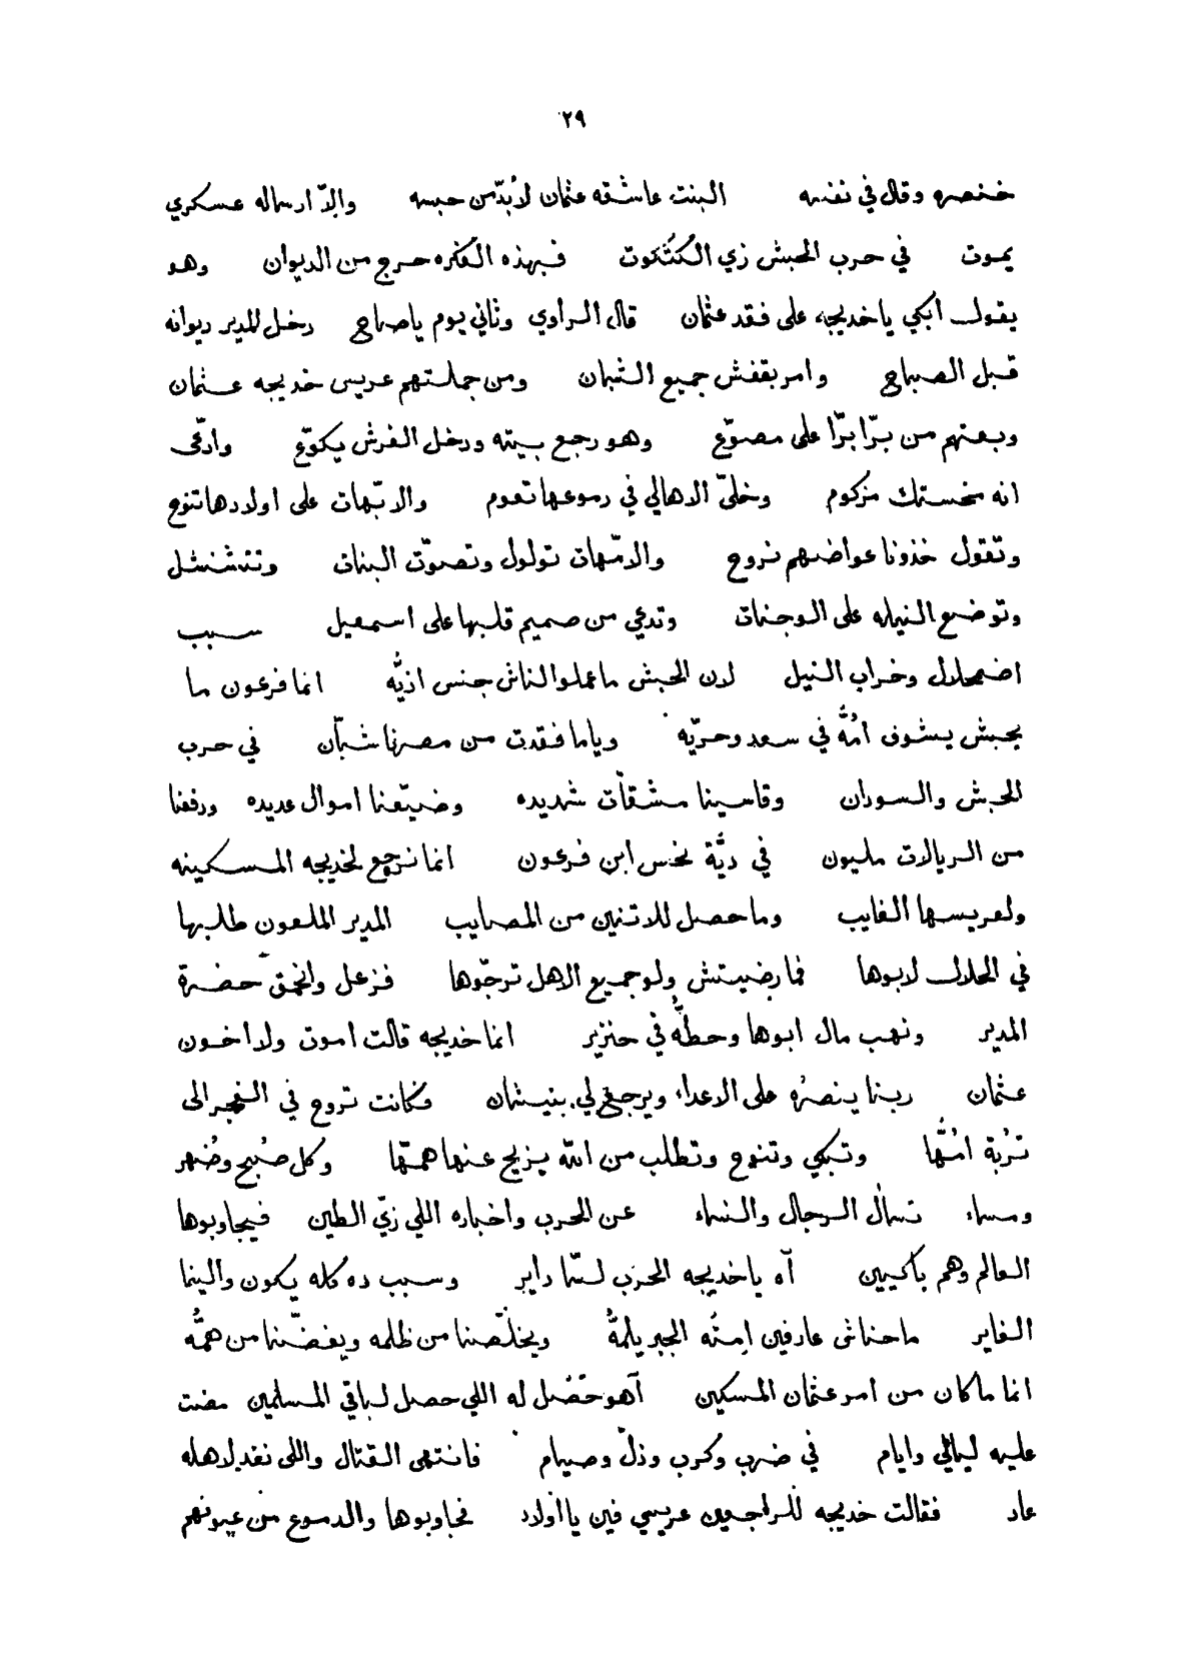 ٢٩
خنصره وقال في نفسه البنت عاشقه عثمان لابُدّ من حبسه والّا ارساله عسكري
يموت في حرب الحبش زي الكَتْكوت فبهذه الفكره خرج من الديوان وهو
يقول ابكي ياخديجه على فقد عثمان قال الراوي وثاني يوم ياصاح دخل المدير ديوانه
قبل الصباح وامر بقفش جميع الشبان ومن جملتهم عريس خديجه عثمان
وبعتهم من برّا برّا على مصوّع وهو رجع بيته ودخل الفرش يكوّع وادّعى
انه مخستك مزكوم وخلىّ الاهالي في دموعها تعوم والابّهات على اولادها تنوح
وتقول خذونا عواضهم نروح والامّهات تولول وتصوّت البنات وتتشنشل
وتوضع النيله على الوجنات وتدعي من صميم قلبها على اسمعيل سبب
اضمحلال وخراب النيل لان الحبش ما عملوا لناش جنس اذيُّه انما فرعون ما
يحبش يشوف امُّه في سعد وحريّه وياما فقدت من مصرنا شبّان في حرب
الحبش والسودان وقاسينا مشقّات شديده وضيّعنا اموال عديده ودفعنا
من الريالات مليون في ديُّة نخس ابن فرعون انما نرجع لخديجه المسكينه
ولعريسها الغايب وما حصل للاتنين من المصايب المدير الملعون طلبها
في الحلال لابوها فما رضيتش ولو جميع الاهل ترجّوها فزعل وانحمق حضرة
المدير ونهب مال ابوها وحطُّه في خنزير انما خديجه قالت اموت ولا اخون
عثمان ربنا ينصرُه على الاعداء ويرجع لي بنيشان فكانت تروح في الفجر الى
تُربة امُّها وتبكي وتنوح وتطلب من اللّٰه يزيح عنها همّها وكل صُبح وضُهر
ومساء تسأل الرجال والنساء عن الحرب واخباره اللي زيّ الطين فيجاوبوها
العالم وهم باكيين آه ياخديجه الحرب لسّا داير وسبب ده كله يكون والينا
الفاير ماحناش عارفين اِمتُه الجبر يلمُّه ويخلّصنا من ظلمه ويفضّنا من همُّه
انما ما كان من امر عثمان المسكين آهو حَصَل له اللي حصل لباقي المسلمين مضت
عليه ليالي وايام في ضرب وكرب وذلّ وصيام فانتهى القتال واللى نفد لاهله
عاد فقالت خديجه للراجعين عريسي فين يا اولاد فجاوبوها والدموع من عيونهم